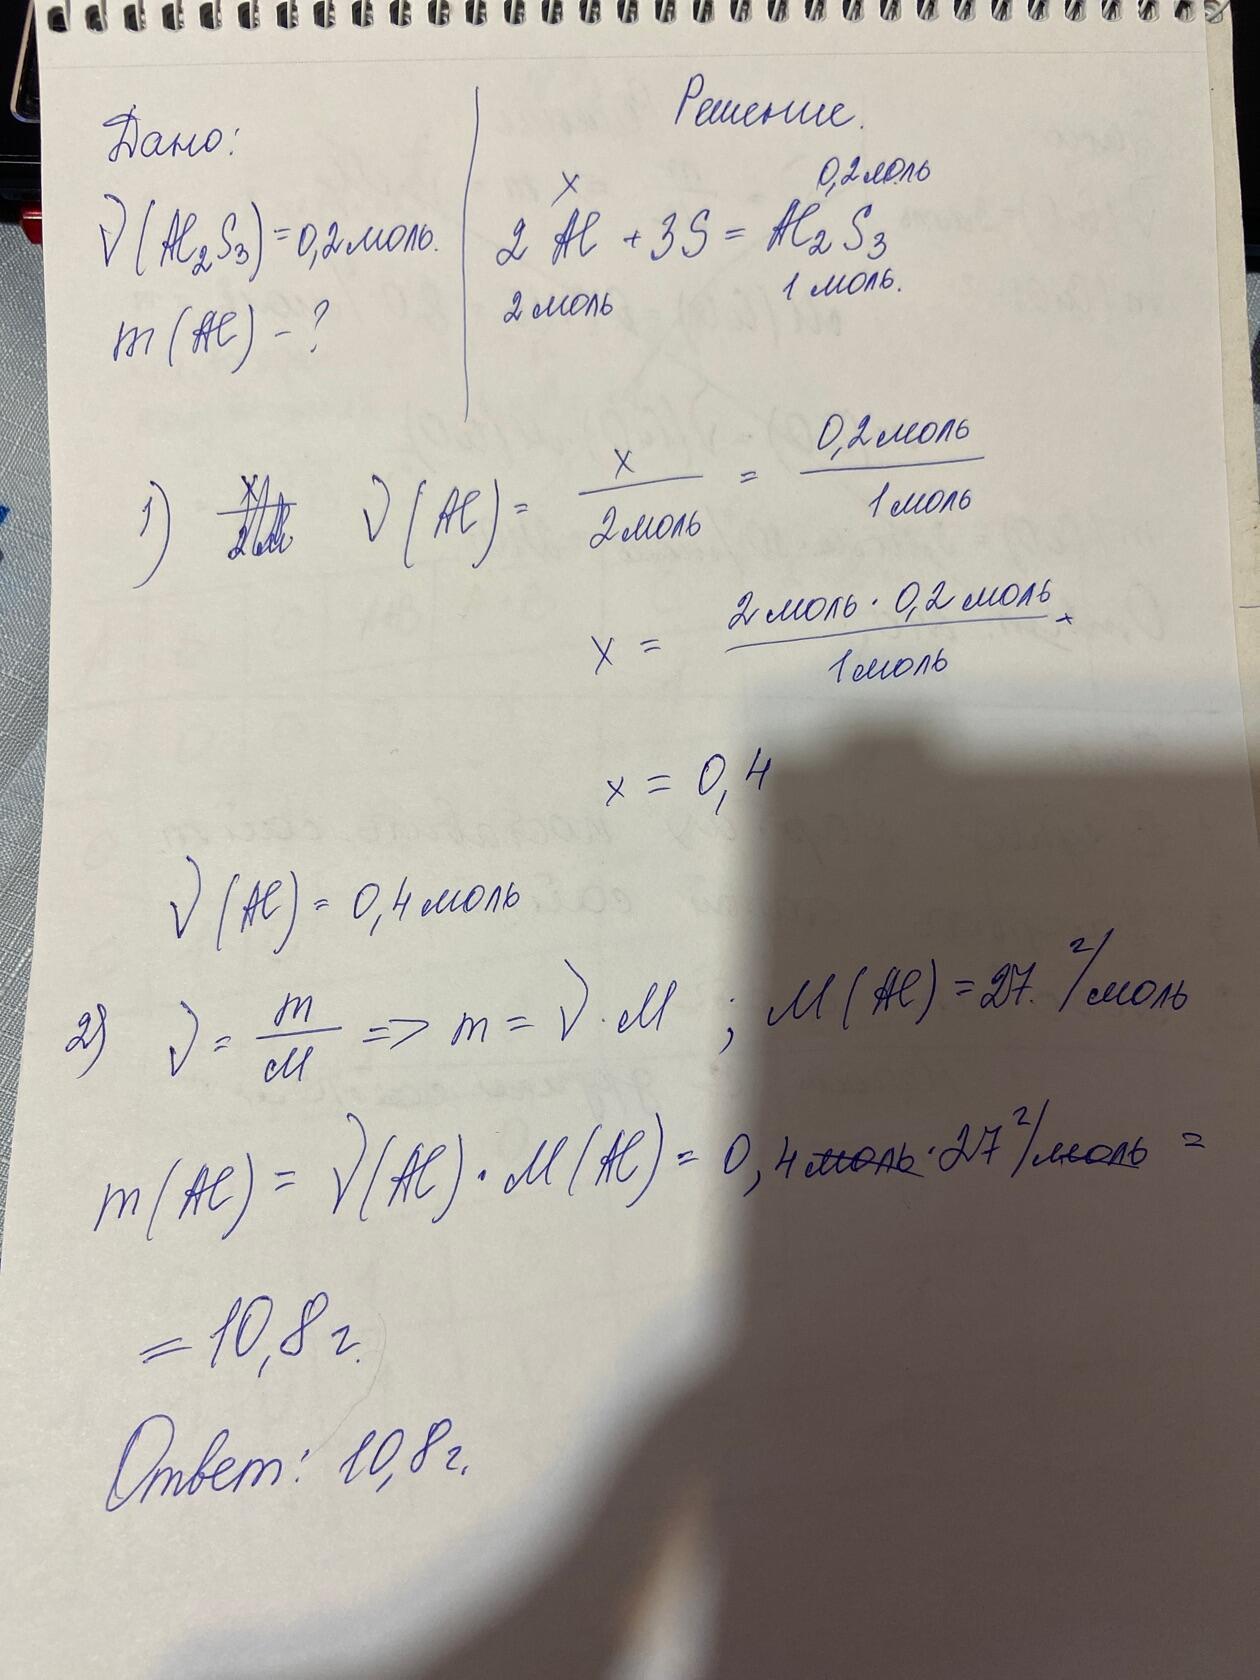 Дано:
ν(Al₂S₃)=0,2моль.
m(Al) - ?
Решение.
x 0,2моль
2Al + 3S = Al₂S₃
2моль 1 моль.
1) ν(Al) = x/2моль = 0,2моль/1моль
x = 2моль · 0,2моль/1моль
x = 0,4
ν(Al) = 0,4моль
2) ν = m/M => m = ν · M ; M(Al) = 27 г/моль
m(Al) = ν(Al) · M(Al) = 0,4моль · 27 г/моль =
= 10,8г.
Ответ: 10,8г.